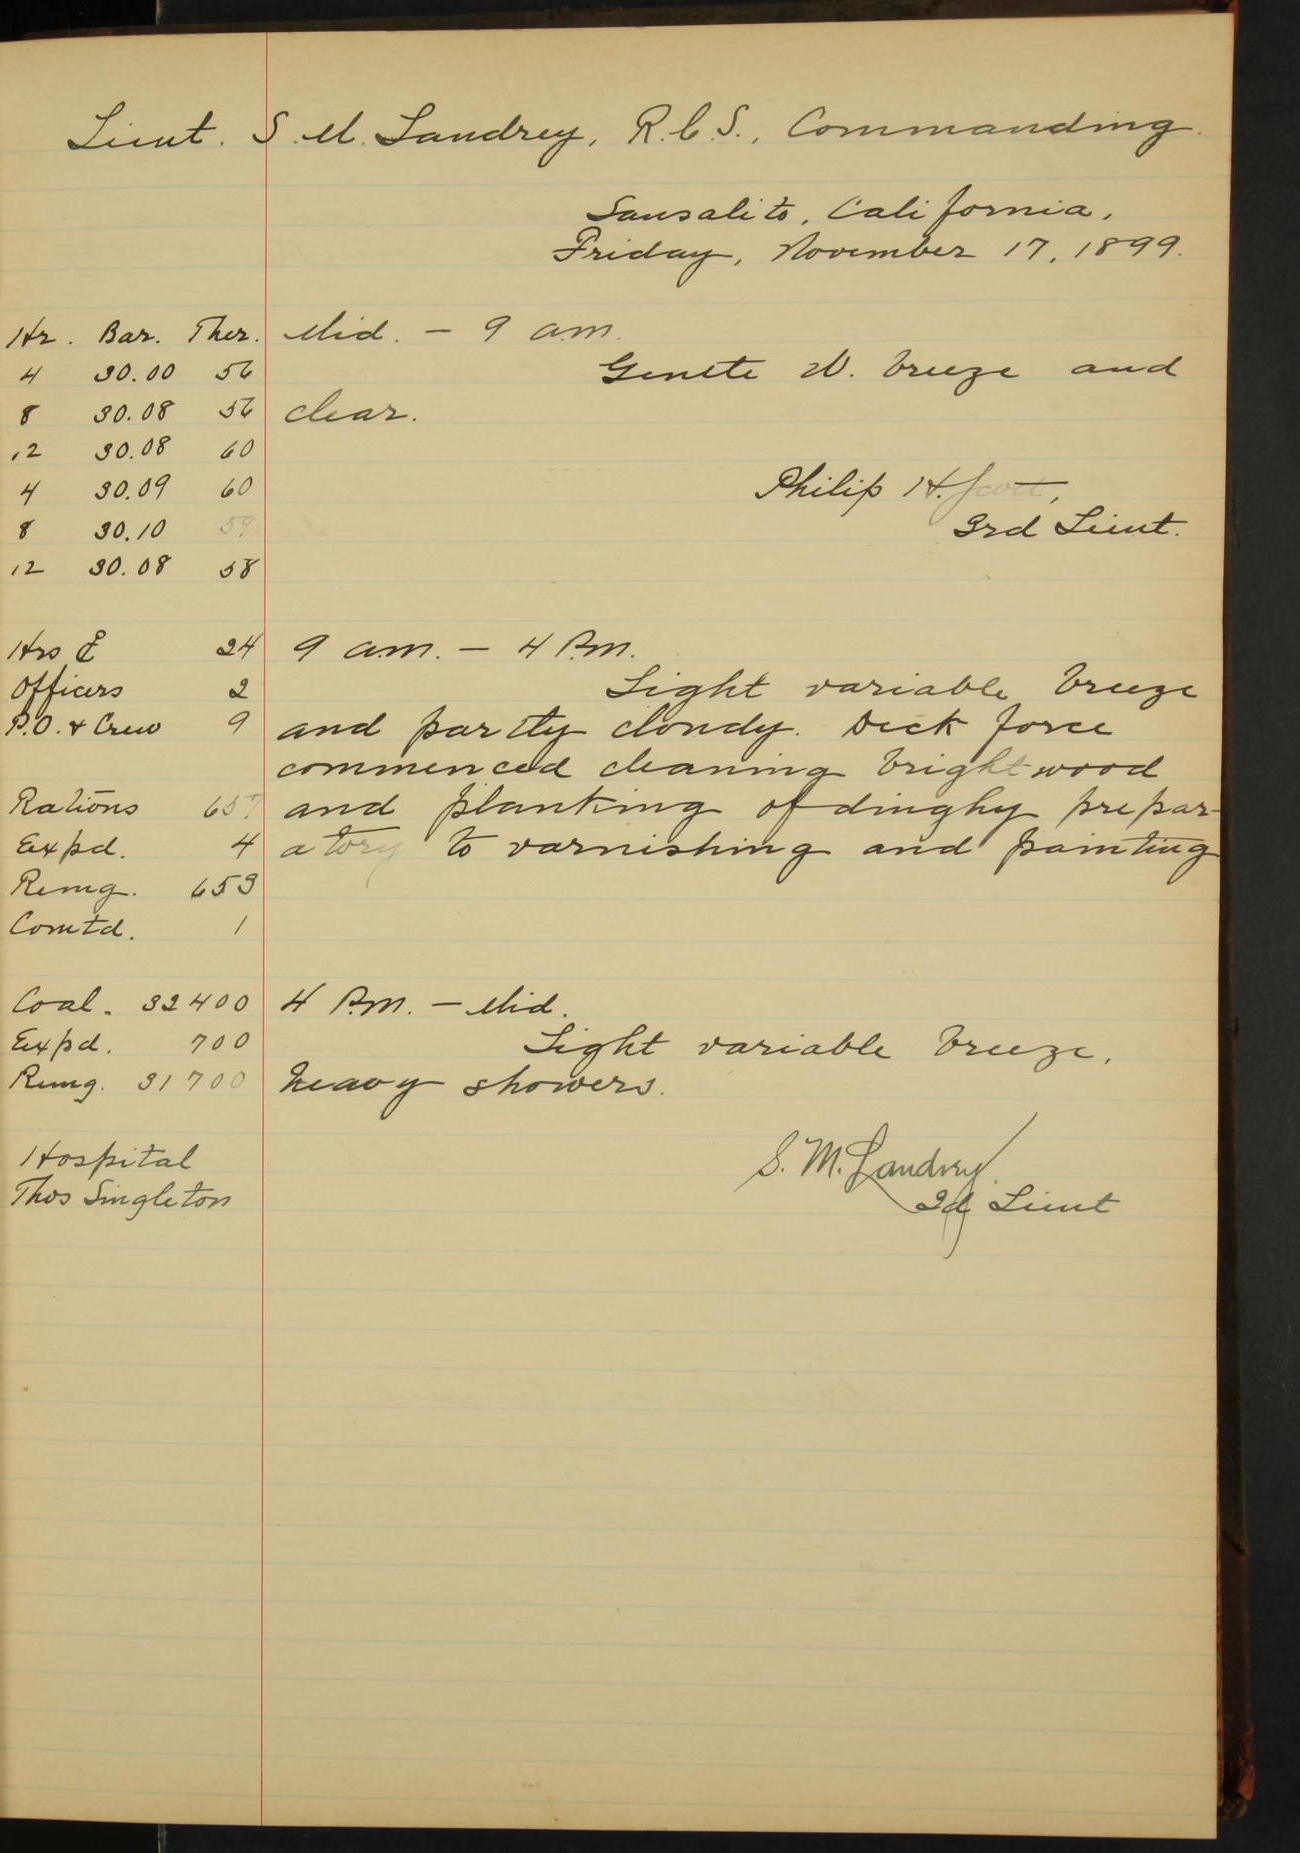 Lieut. S. M. Landrey, R.C.S., Commanding.
Sausalito, California,
Friday, November 17, 1899.
Hr. Bar. Ther. Mid. – 9 a.m.
4 30.00 56 Gentle W. breeze and
8 30.08 56 clear.
12 30.08 60
4 30.09 60 Philip H. Scott,
8 30.10 59 3rd Lieut.
12 30.08 58
Hrs 24 9 a.m. – 4 P.m.
Officers 2 Light variable breeze
P.O. & Crew 9 and partly cloudy. Deck force
commenced cleaning bright wood
Rations 657 and planking of dinghy prepar-
Expd. 4 atory to varnishing and painting
Remg. 653
Comtd. 1
Coal. 32400 4 P.m. – Mid.
Expd. 700 Light variable breeze,
Remg. 31700 heavy showers.
Hospital S. M. Landrey.
Thos Singleton 2d Lieut